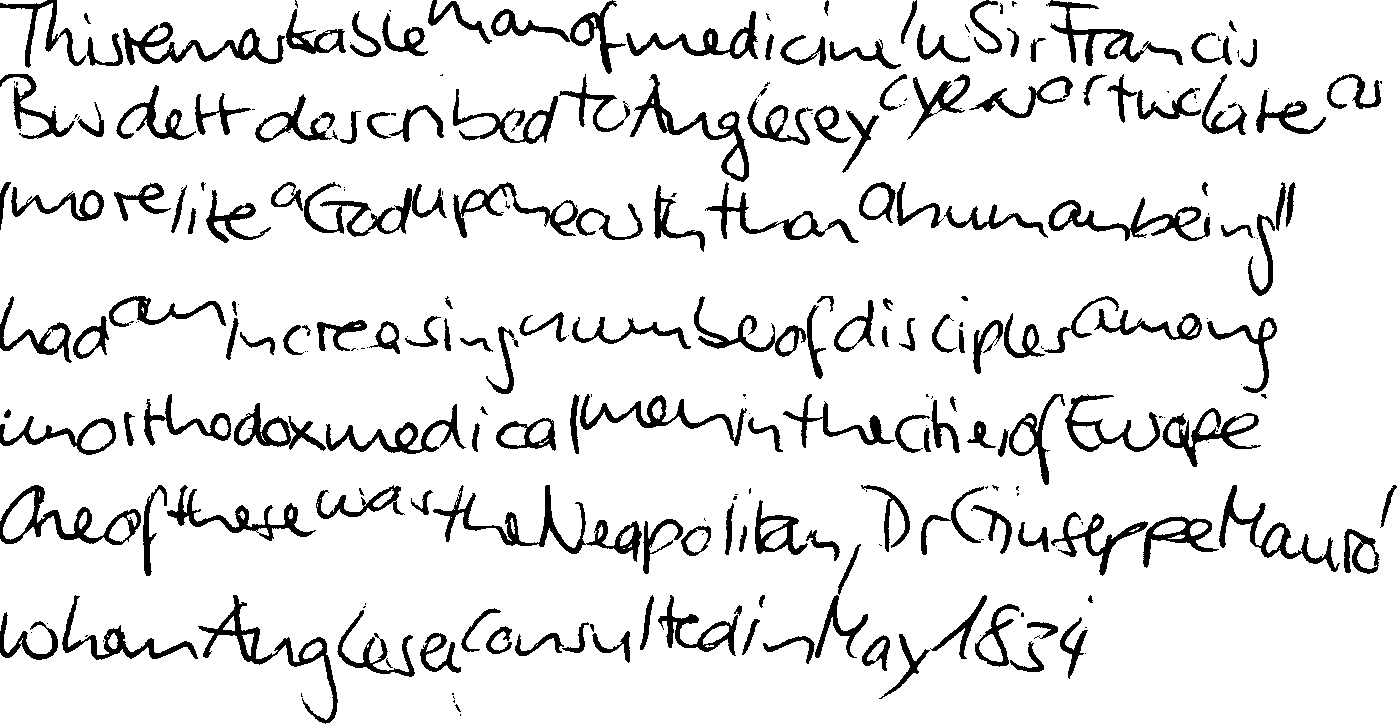 This remarkable man of medicine, 'u Sir Francis
Burdett described to Anglesey a year or two late as
'more like a God upon earth than a human being"
had an increasing number of disciples among
unorthodox medical men in the cities of Europe
One of these was the Neapolitan, Dr Giuseppe Mauro'
whom Anglesey consulted in May 1834